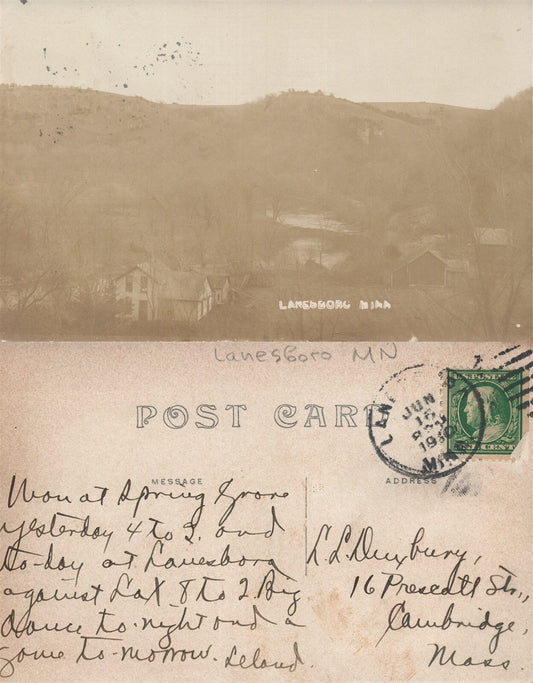 LANESBORO MINN
Lanesboro MN
POST CARD
LANE
JUN
16
1910
MINN
U.S. POSTAGE
MESSAGE
ADDRESS
Won at Spring Grove
yesterday 4 to 3. and
to-day at Lanesboro
against LaX 8 to 2 Big
dance to-night and a
game to-morrow. Leland.
L. L. Duxbury,
16 Prescott Str.,
Cambridge,
Mass.